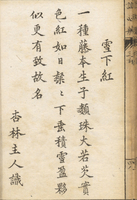 雪下紅
一種藤本生子類珠大若芡實
色紅如日粲粲下垂積雪盈顆
似更有致故名
杏林主人識